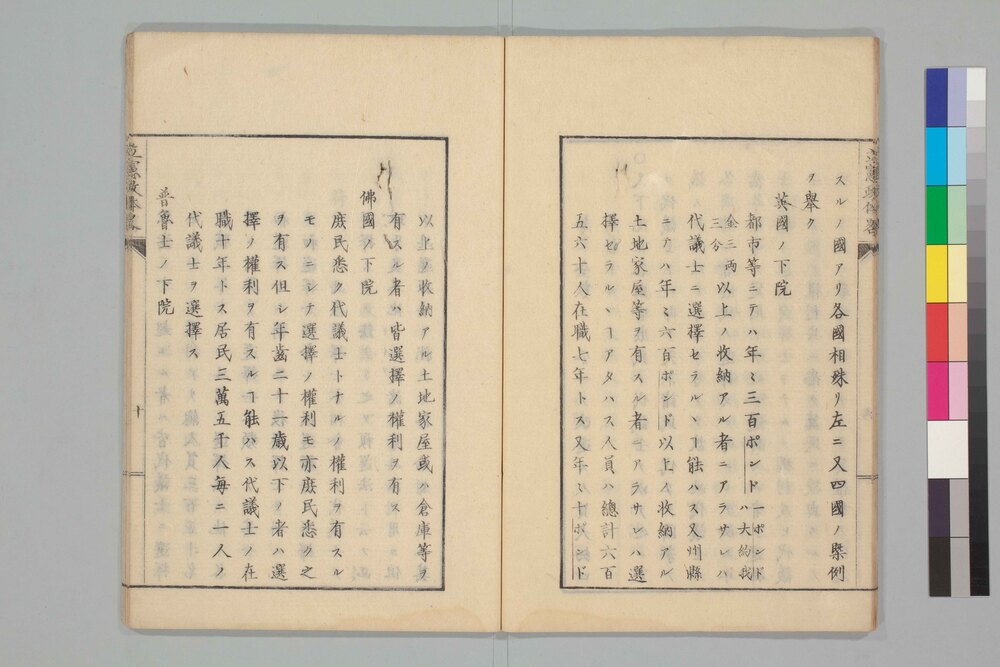 スルノ國アリ各國相殊リ左ニ又四國ノ槩例
ヲ舉ク
英國ノ下院
都市等ニテハ年〻三百ポンド一ポンドハ大約我
金三兩三分以上ノ收納アル者ニアラサレハ
代議士ニ選擇セラルヽヿ能ハス又州縣
ニアハ年〻六百ポンド以上ノ收納アル
土地家屋等ヲ有スル者ニアラサレハ選
擇セラルヽヿアタハス人員ハ總計六百
五六十人在職七年トス又年〻十ポンド
以上ノ收納アル土地家屋或ハ倉庫等ヲ
有スル者ハ皆選擇ノ權利ヲ有ス
佛國ノ下院
庶民悉ク代議士トナルノ權利ヲ有スル
モノニシテ選擇ノ權利モ亦庶民悉ク之
ヲ有ス但シ年齒二十一歳以下ノ者ハ選
擇ノ權利ヲ有スルヿ能ハス代議士ノ在
職十年トス居民三萬五千人每ニ一人ノ
代議士ヲ選擇ス
普魯士ノ下院
十